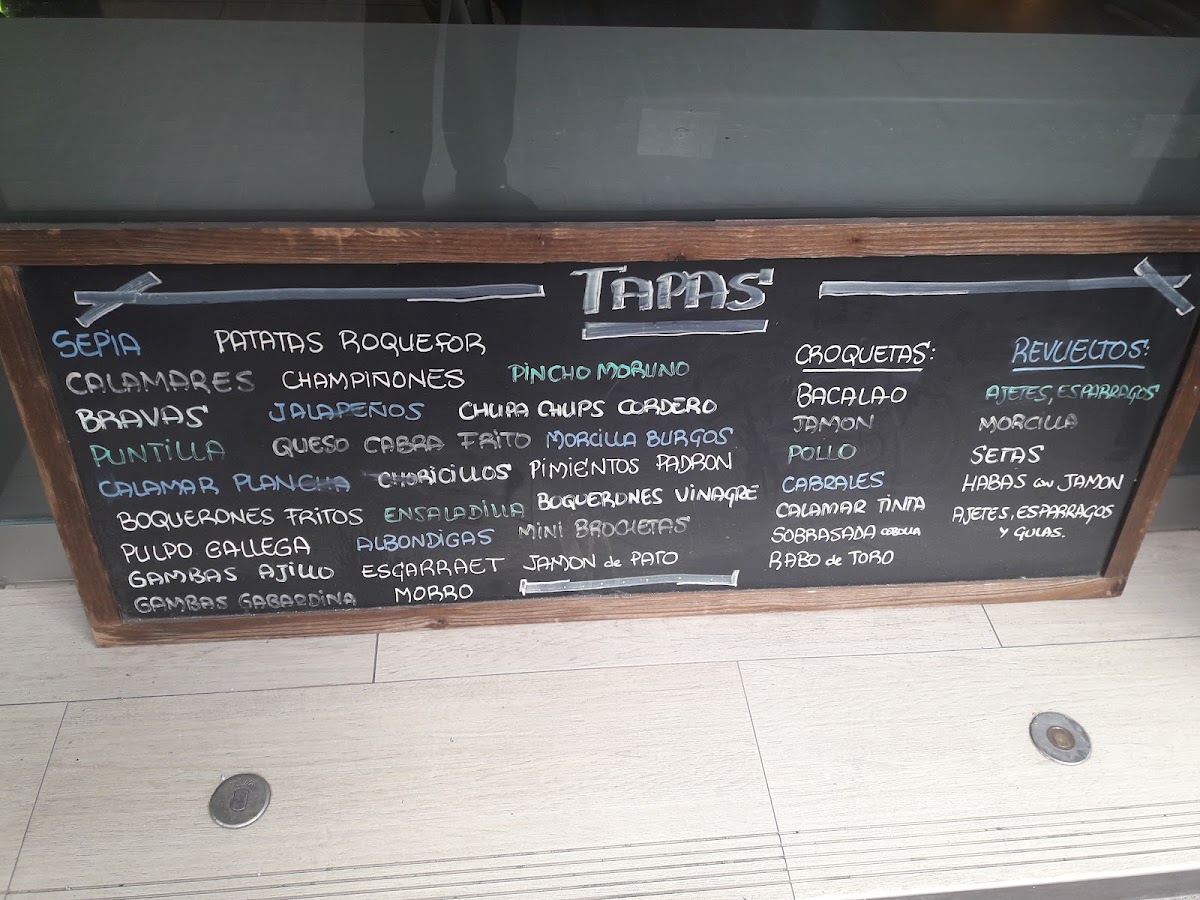 TAPAS
SEPIA
CALAMARES
BRAVAS
PUNTILLA
CALAMAR PLANCHA
BOQUERONES FRITOS
PULPO GALLEGA
GAMBAS AJILLO
GAMBAS GABARDINA
PATATAS ROQUEFOR
CHAMPIÑONES
JALAPEÑOS
QUESO CABRA FRITO
CHORICILLOS
ENSALADILLA
ALBONDIGAS
ESGARRAET
MORRO
PINCHO MORUNO
CHUPA CHUPS CORDERO
MORCILLA BURGOS
PIMIENTOS PADRON
BOQUERONES VINAGRE
MINI BROCHETAS
JAMON de PATO
CROQUETAS:
BACALAO
JAMON
POLLO
CABRALES
CALAMAR TINTA
SOBRASADA CEBOLLA
RABO de TORO
REVUELTOS:
AJETES, ESPARRAGOS
MORCILLA
SETAS
HABAS con JAMON
AJETES, ESPARRAGOS
Y GULAS.